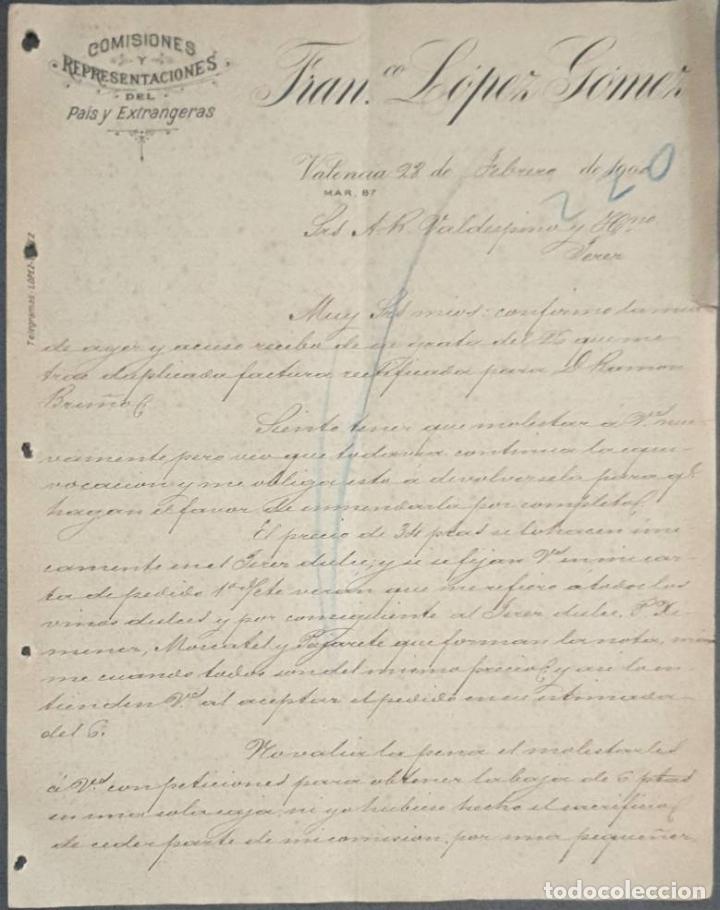 COMISIONES
Y
REPRESENTACIONES
DEL
País y Extrangeras
Fran.co López Gómez
Valencia 28 de Febrero de 190
MAR, 87
220
Srs A. R. Valdespino y Hno
Jerez
Telegramas: LOPEZ
Muy Srs mios: confirmo la mia
de ayer y acuso recibo de su grata del que me
trae duplicada factura rectificada para D. Ramon
Siento tener que molestar á Vds nue-
vamente pero veo que todavia continua la equi-
vocacion y me obliga esto a devolversela para qe
hagan el favor de enmendarla por completo.
El precio de 34 ptas se lo hacen úni-
camente en el Jerez dulce; y si se fijan Vds en mi car-
ta de pedido 1º verán que me refiero a todos los
vinos dulces y por consiguiente al Jerez dulce, P. Xi-
menez, Moscatel y Pajarete que forman la nota,
me cuando todos son del mismo precio y asi lo en-
tienden Vds al aceptar el pedido en su estimada
del 6.
No valia la pena el molestarles
á Vds con peticiones para obtener la baja de 6 ptas
en una sola caja, ni yo hubiese hecho el sacrificio
de ceder parte de mi comision, por una pequeñez
todocoleccion